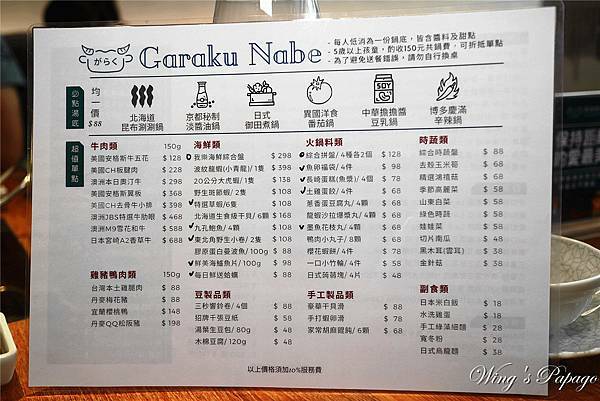 がらく
Garaku Nabe
- 每人低消為一份鍋底，皆含醬料及甜點
- 5歲以上孩童，酌收150元共鍋費，可折抵單點
- 為了避免送餐錯誤，請勿自行換桌
必點湯底
均一價
$88
北海道
昆布涮涮鍋
京都秘制
淡醬油鍋
日式
御田煮鍋
異國洋食
番茄鍋
SOY
中華擔擔醬
豆乳鍋
博多慶滿
辛辣鍋
超值單點
牛肉類 150g
美國安格斯牛五花 $ 128
美國CH板腱肉 $ 228
澳洲本日奧汀牛 $ 298
美國安格斯翼板 $ 368
美國CH去骨牛小排 $ 398
澳洲JBS特選牛肋眼 $ 468
澳洲M9雪花和牛 $ 588
日本宮崎A2香草牛 $ 688
雞豬鴨肉類 150g
台灣本土雞腿肉 $ 88
丹麥梅花豬 $ 88
宜蘭櫻桃鴨 $ 148
丹麥QQ松阪豬 $ 198
海鮮類
我樂海鮮綜合盤 $ 298
波紋龍蝦(小青龍)/ 1隻 $ 298
20公分大虎蝦/ 1隻 $ 138
野生斑節蝦/ 2隻 $ 108
特選草蝦/6隻 $ 108
北海道生食級干貝/ 6顆 $ 168
九孔鮑魚/ 4顆 $ 108
東北角野生小卷/ 2隻 $ 108
膠原蛋白曼波魚/ 100g $ 88
鮮美海鱺魚片/ 100g $ 98
每日鮮送蛤蠣 $ 88
豆製品類
三秒響鈴卷/ 4個 $ 88
招牌千張豆紙 $ 58
湯葉生豆包/ 80g $ 48
木棉豆腐/ 120g $ 48
火鍋料類
綜合拼盤/ 4種各2個 $ 128
魚卵福袋/ 4個 $ 98
長崎蛋糕(魚漿)/ 4個 $ 78
土雞蛋餃/ 4個 $ 68
蔥香蛋豆腐丸/ 4顆 $ 68
龍蝦沙拉爆漿丸/ 4顆 $ 68
墨魚花枝丸/ 4顆 $ 68
鴨肉小丸子/ 8顆 $ 68
櫻花蝦餅/ 4個 $ 78
一口小竹輪/ 4個 $ 58
日式蒟蒻塊/ 4片 $ 48
手工製品類
豪華干貝滑 $ 88
手打蝦卵滑 $ 78
家常胡麻餛飩/ 6顆 $ 68
時蔬類
綜合時蔬盤 $ 88
去殼玉米筍 $ 68
精選鴻禧菇 $ 58
季節高麗菜 $ 58
山東白菜 $ 58
綠色時蔬 $ 58
娃娃菜 $ 58
切片南瓜 $ 48
黑木耳(雲耳) $ 38
金針菇 $ 38
副食類
日本米白飯 $ 18
水洗雞蛋 $ 18
手工綠藻細麵 $ 28
寬冬粉 $ 28
日式烏龍麵 $ 38
以上價格須加10%服務費
Wing's Papago